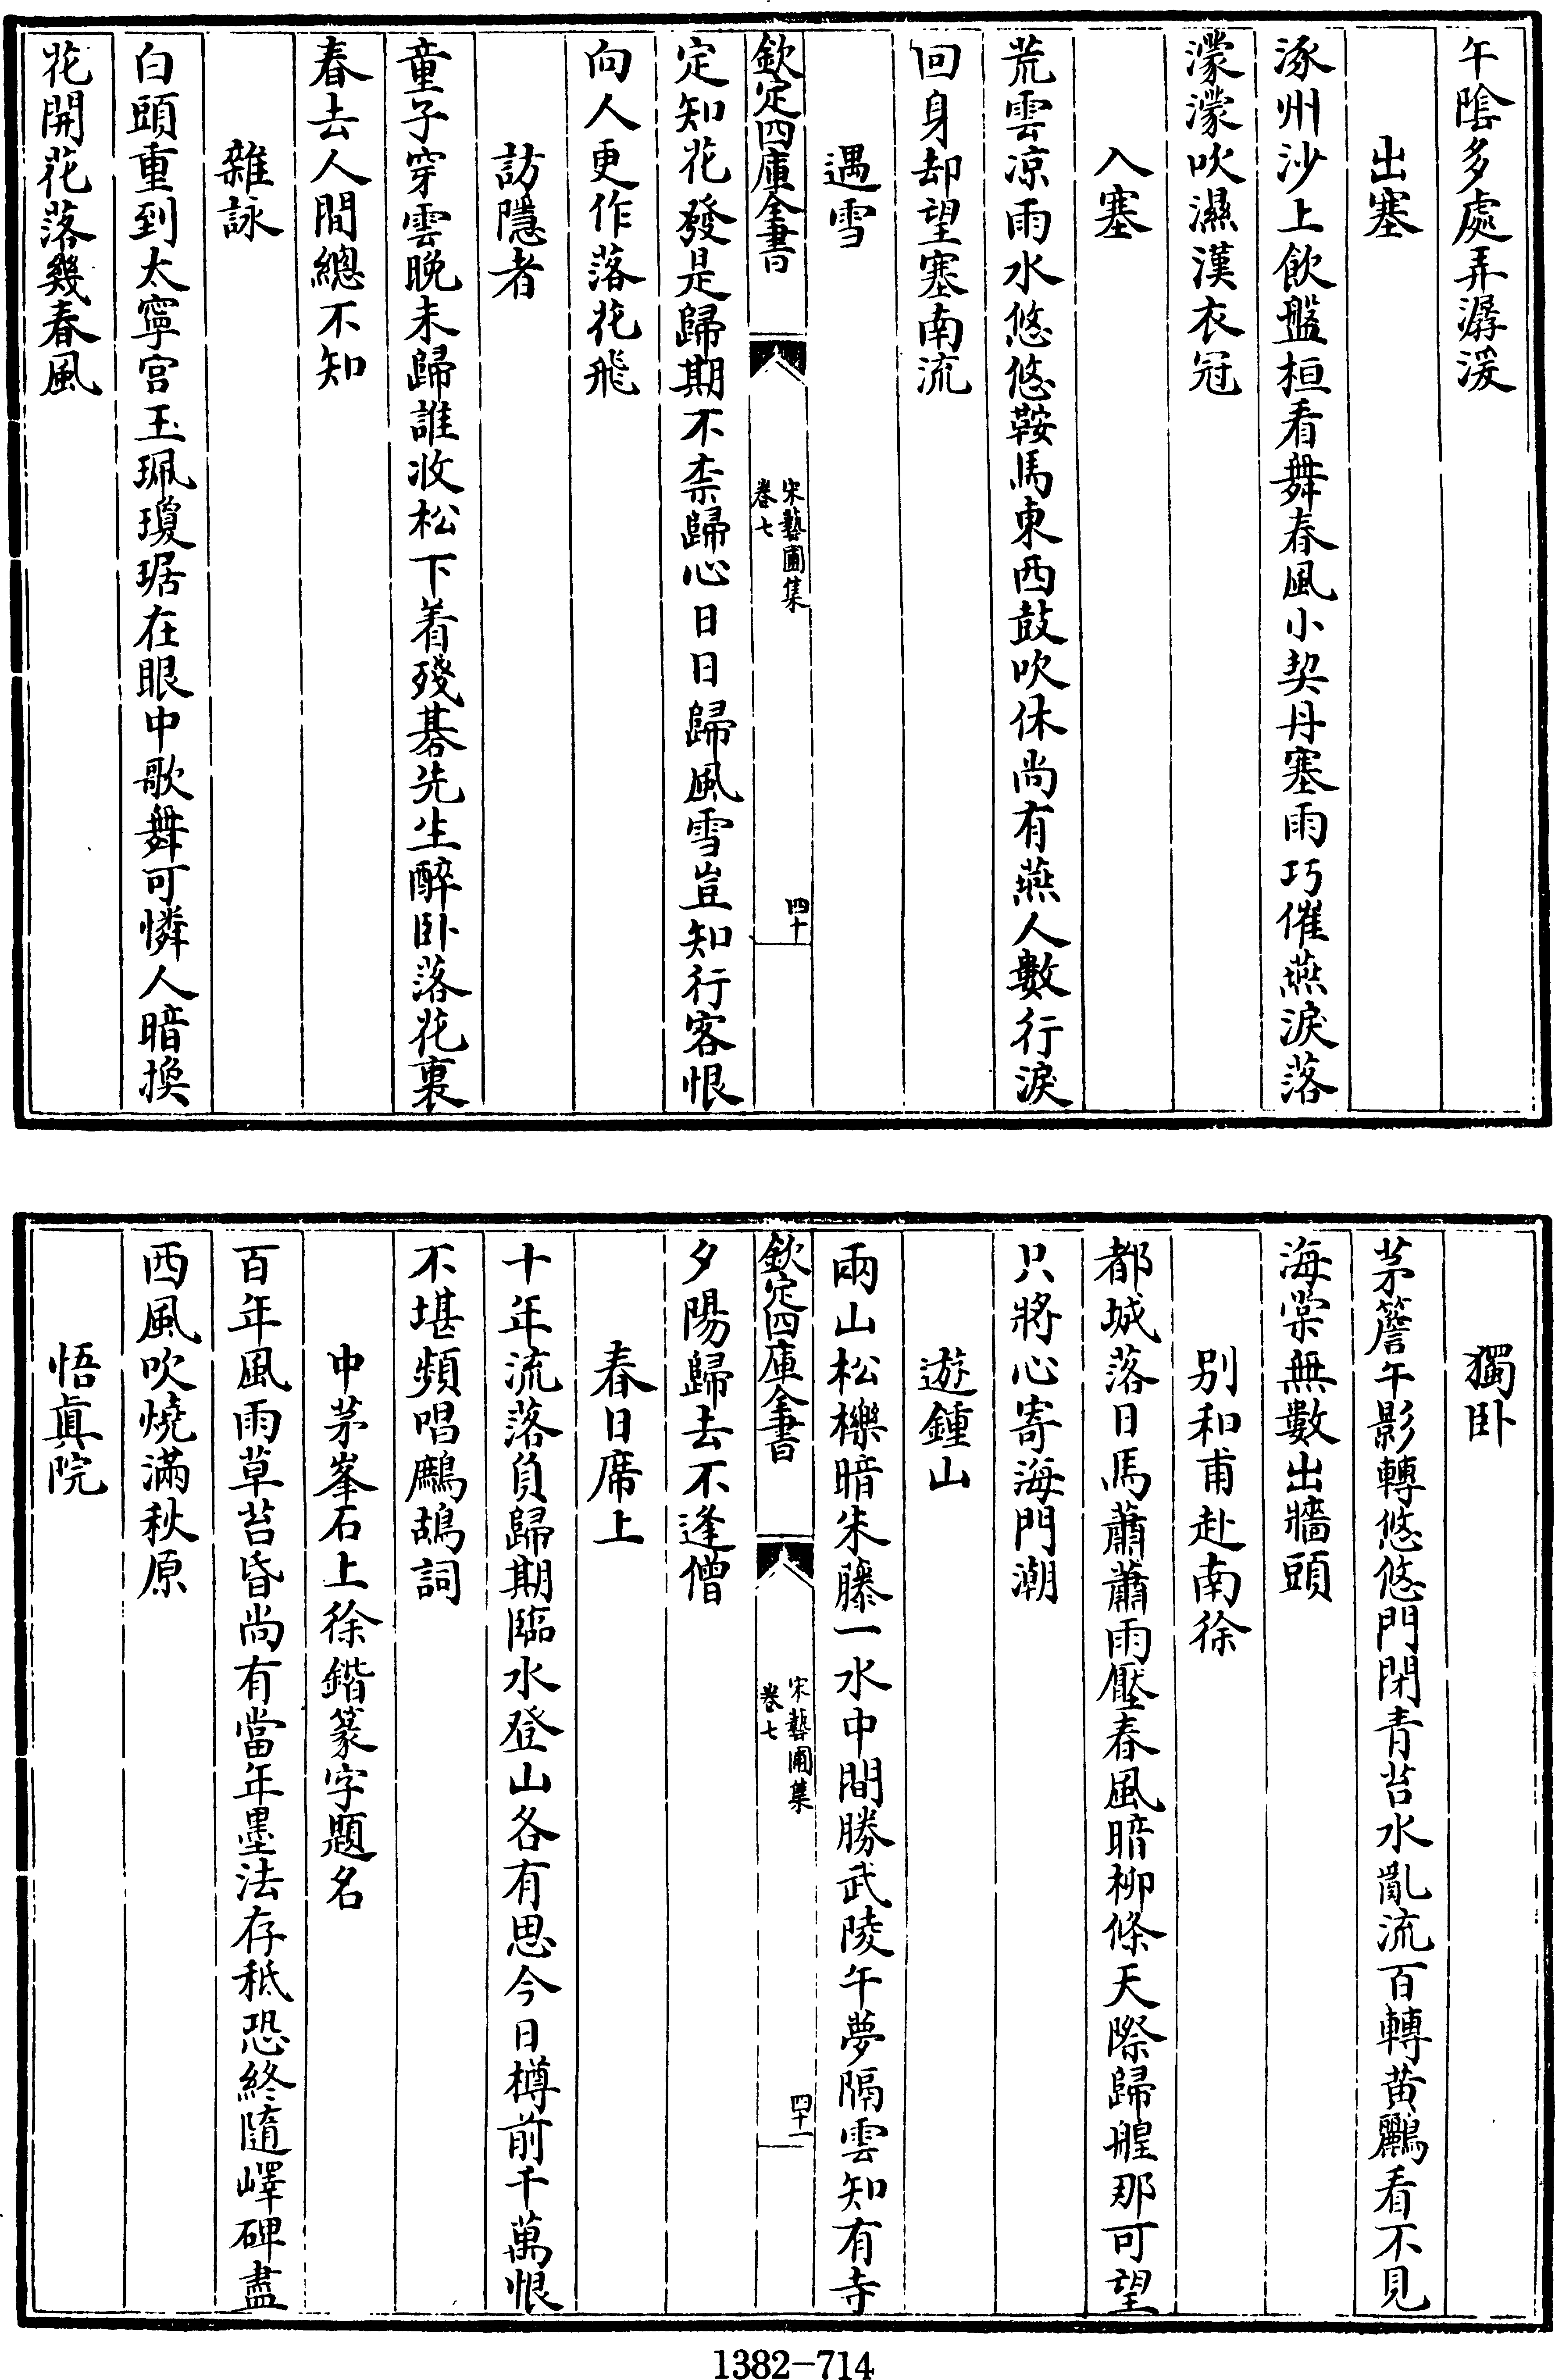 午陰多處弄潺湲
出塞
涿州沙上飲盤桓看舞春風小契丹塞雨巧催燕淚落
濛濛吹濕漢衣冠
入塞
荒雲凉雨水悠悠鞍馬東西鼓吹休尚有燕人數行淚
回身却望塞南流
遇雪
欽定四庫全書
宋藝圃集
卷七
四十
定知花發是歸期不柰歸心日日歸風雪豈知行客恨
向人更作落花飛
訪隱者
童子穿雲晚未歸誰收松下着殘碁先生醉卧落花裏
春去人間總不知
雜詠
白頭重到太寧宫玉珮瓊琚在眼中歌舞可憐人暗換
花開花落幾春風
獨卧
茅簷午影轉悠悠門閉青苔水亂流百轉黄鸝看不見
海棠無數出牆頭
别和甫赴南徐
都城落日馬蕭蕭雨壓春風暗柳條天際歸艎那可望
只將心寄海門潮
遊鍾山
兩山松櫟暗朱藤一水中間勝武陵午夢隔雲知有寺
欽定四庫全書
宋藝圃集
卷七
四十一
夕陽歸去不逢僧
春日席上
十年流落負歸期臨水登山各有思今日樽前千萬恨
不堪頻唱鷓鴣詞
中茅峯石上徐鍇篆字題名
百年風雨草苔昏尚有當年墨法存秪恐終隨嶧碑盡
西風吹燒滿秋原
悟真院
1382-714